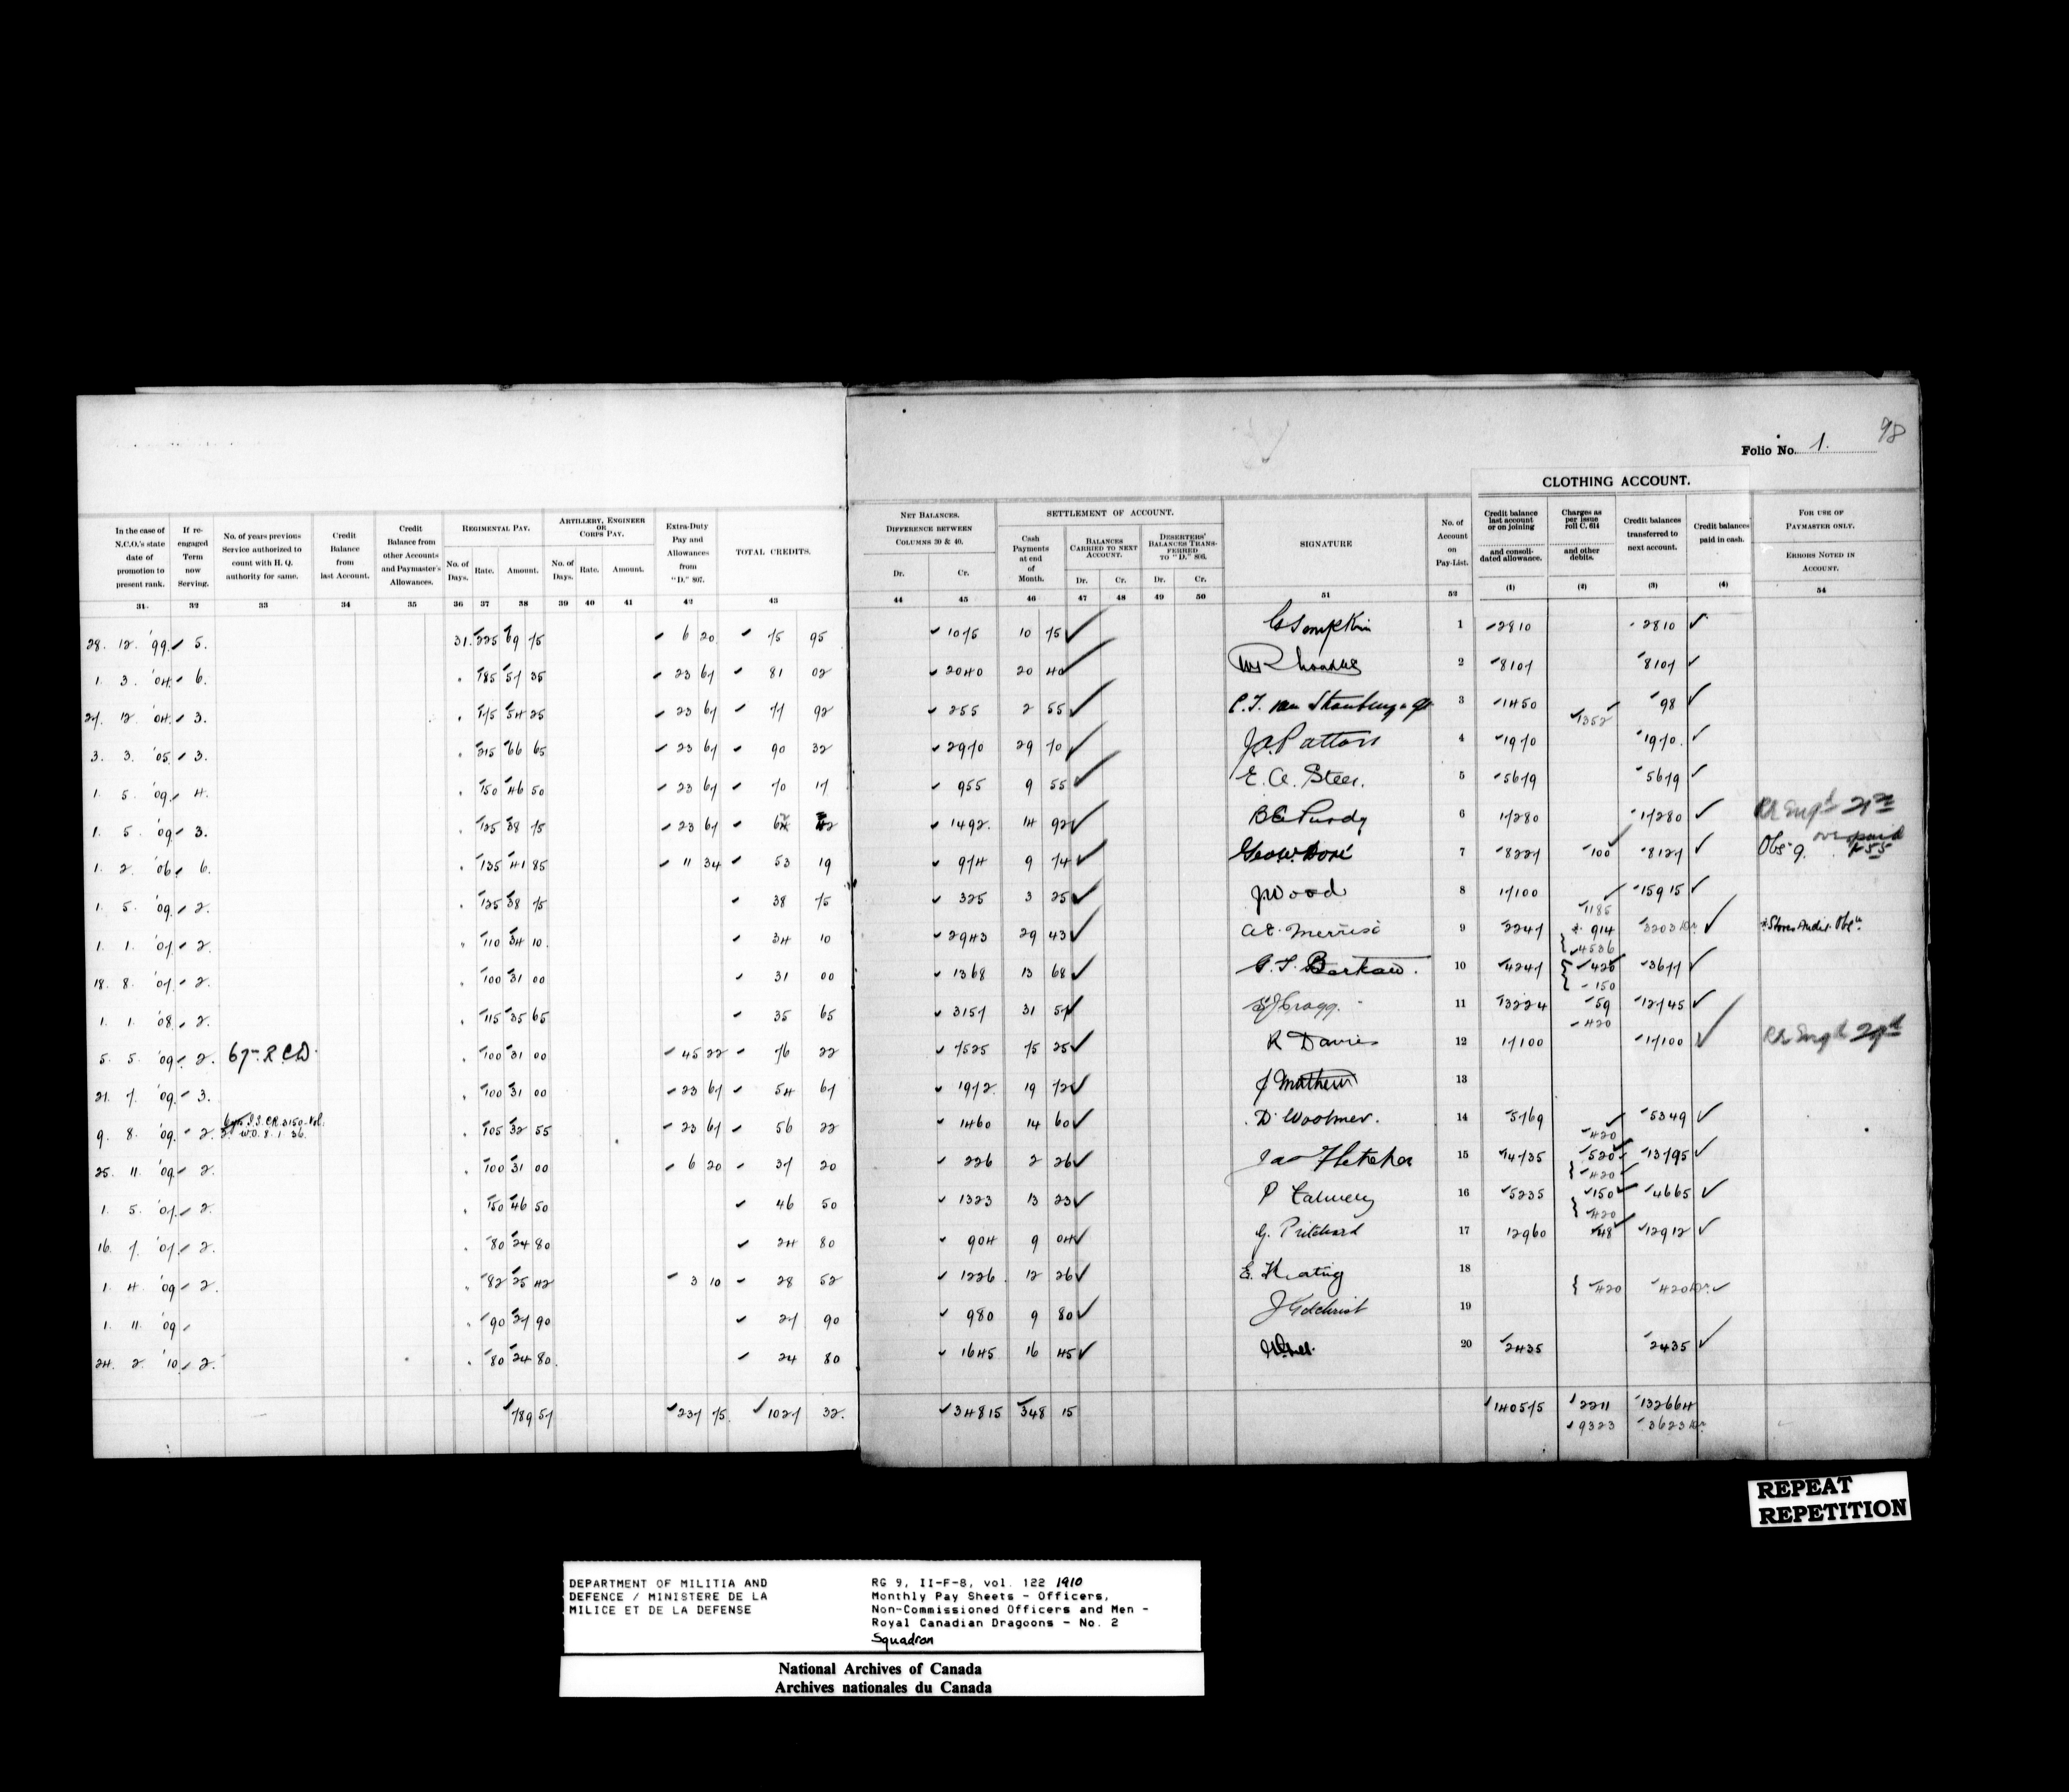 98
Folio No. 1.
CLOTHING ACCOUNT.
In the case of N.C.O.'s state date of promotion to present rank.
If re-engaged Term now Serving.
No. of years previous Service authorized to count with H. Q. authority for same.
Credit Balance from last Account.
Credit Balance from other Accounts and Paymaster's Allowances.
REGIMENTAL PAY.
No. of Days. Rate. Amount.
ARTILLERY, ENGINEER OR CORPS PAY.
No. of Days. Rate. Amount.
Extra-Duty Pay and Allowances from "D." 807.
TOTAL CREDITS.
NET BALANCES. DIFFERENCE BETWEEN COLUMNS 30 & 40.
Dr. Cr.
SETTLEMENT OF ACCOUNT.
Cash Payments at end of Month.
BALANCES CARRIED TO NEXT ACCOUNT.
Dr. Cr.
DESERTERS' BALANCES TRANSFERRED TO "D." 806.
Dr. Cr.
SIGNATURE
No. of Account on Pay-List.
Credit balance last account or on joining and consolidated allowance. (1)
Charges as per issue roll C. 614 and other debits. (2)
Credit balances transferred to next account. (3)
Credit balances paid in cash. (4)
FOR USE OF PAYMASTER ONLY.
ERRORS NOTED IN ACCOUNT.
31. 32 33 34 35 36 37 38 39 40 41 42 43 44 45 46 47 48 49 50 51 52 54
28. 12. '99 5. 31. 225 69 75 6 20 75 95 1075 10 75 1 2810 2810
1. 3. '04 6. 185 57 35 23 67 81 02 2040 20 40 2 8107 8107
27. 12. '04 3. 175 54 25 23 67 77 92 255 2 55 3 1450 1352 98
3. 3. '05 3. 215 66 65 23 67 90 32 2970 29 70 J.A. Patton 4 1970 1970
1. 5. '09 4. 150 46 50 23 67 70 17 955 9 55 E. A. Steer. 5 5679 5679
1. 5. '09 3. 125 38 75 23 67 62 42 1492. 14 92 Purdy 6 17280 17280
1. 2. '06 6. 135 41 85 11 34 53 19 974 9 74 Geo. W. Doré 7 8227 100 8127 Obs. 9. overpaid
1. 5. '09 2. 125 38 75 38 75 325 3 25 J Wood 8 17100 1185 15915
1. 1. '07 2. 110 34 10. 34 10 2943 29 43 9 2247 914 4536 3203 Dr. Stores Audit Obs.
18. 8. '07 2. 100 31 00 31 00 1368 13 68 10 4247 420 150 3677
1. 1. '08 2. 115 35 65 35 65 3157 31 57 11 13224 59 420 12745
5. 5. '09 2. 67 R.C.D. 100 31 00 45 22 76 22 7525 75 25 R Davies 12 17100 17100
21. 7. '09 3. 100 31 00 23 67 54 67 1972 19 72 J Mathews 13
9. 8. '09 2. 105 32 55 23 67 56 22 1460 14 60 D. Woolmer. 14 5769 420 5349
25. 11. '09 2. 100 31 00 6 20 37 20 226 2 26 Jas Fletcher 15 14735 520 420 13795
1. 5. '07 2. 150 46 50 46 50 1323 13 23 16 5235 150 420 4665
16. 7. '07 2. 80 24 80 24 80 904 9 04 G. Pritchard 17 12960 48 12912
1. 4. '09 2. 82 25 42 3 10 28 52 1226 12 26 E. Keating 18 420 420 Dr.
1. 11. '09 90 27 90 27 90 980 9 80 J Gilchrist 19
24. 2. '10 2. 80 24 80. 24 80 1645 16 45 20 2435 2435
789 57 237 75. 1027 32. 34815 348 15 140575 2211 132664
9323 3623 Dr.
REPEAT
REPETITION
DEPARTMENT OF MILITIA AND
DEFENCE / MINISTERE DE LA
MILICE ET DE LA DEFENSE
RG 9, II-F-8, vol. 122 1910
Monthly Pay Sheets - Officers,
Non-Commissioned Officers and Men -
Royal Canadian Dragoons - No. 2
Squadron
National Archives of Canada
Archives nationales du Canada